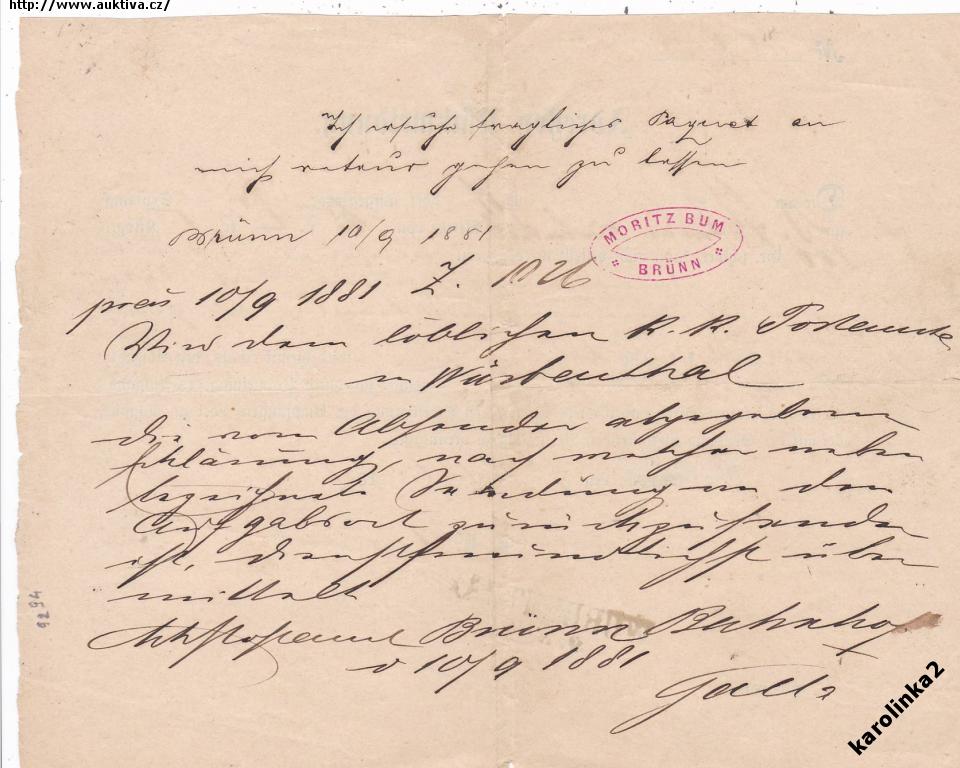 http://www.auktiva.cz/
Ich ersuche fragliches Paquet an
mich retour gehen zu lassen
Brünn 10/9 1881
MORITZ BUM
BRÜNN
präs 10/9 1881 Z. 1026
Wird dem löblichen K. K. Postamte
in Würbenthal
die vom Absender abgegebene
Erklärung, nach welcher neben
bezeichnete Sendung an den
Aufgabsort zurückzusenden
ist, dienstfreundlichst über
mittelt
Brünn Bahnhof
10/9 1881
9294
karolinka2